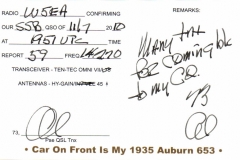 RADIO W5EA CONFIRMING
OUR SSB QSO 11/7 2010
AT 1951 UTC TIME
REPORT 59 FREQ 14/270
TRANSCEIVER - TEN-TEC OMNI VI
ANTENNAS - HY-GAIN 45 ft
73,
Pse QSL Tnx
REMARKS:
MANY TNX
FOR COMING BK
TO MY CQ.
73
• Car On Front Is My 1935 Auburn 653 •